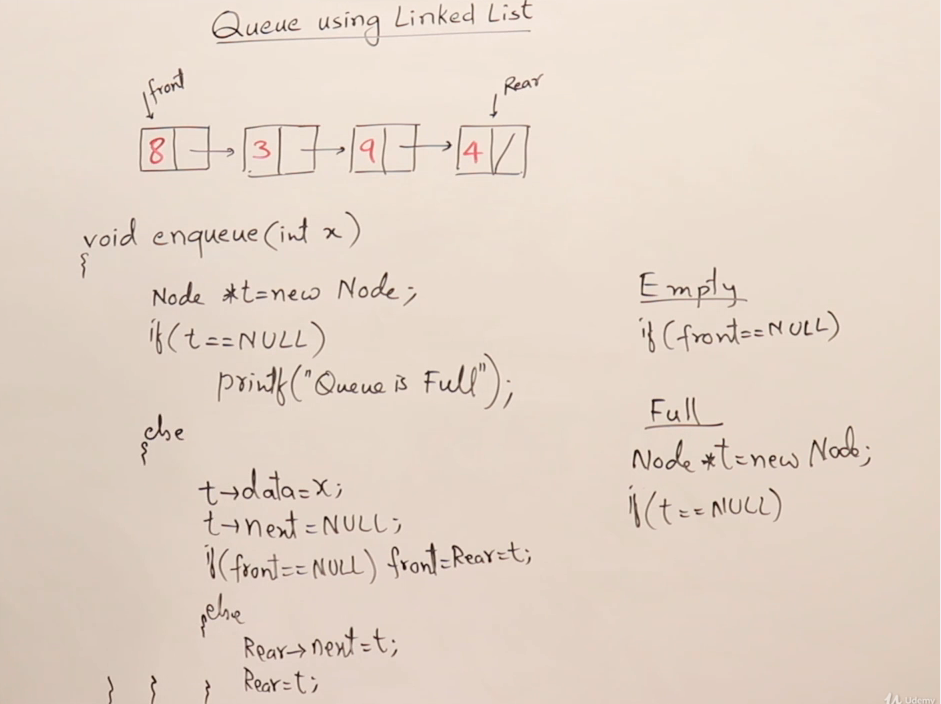 Queue using Linked List
front
Rear
8 3 9 4
void enqueue(int x)
{
Node *t=new Node;
if(t==NULL)
printf("Queue is Full");
else
{
t→data=x;
t→next=NULL;
if(front==NULL) front=Rear=t;
else
{
Rear→next=t;
Rear=t;
} } }
Empty
if(front==NULL)
Full
Node *t=new Node;
if(t==NULL)
Udemy